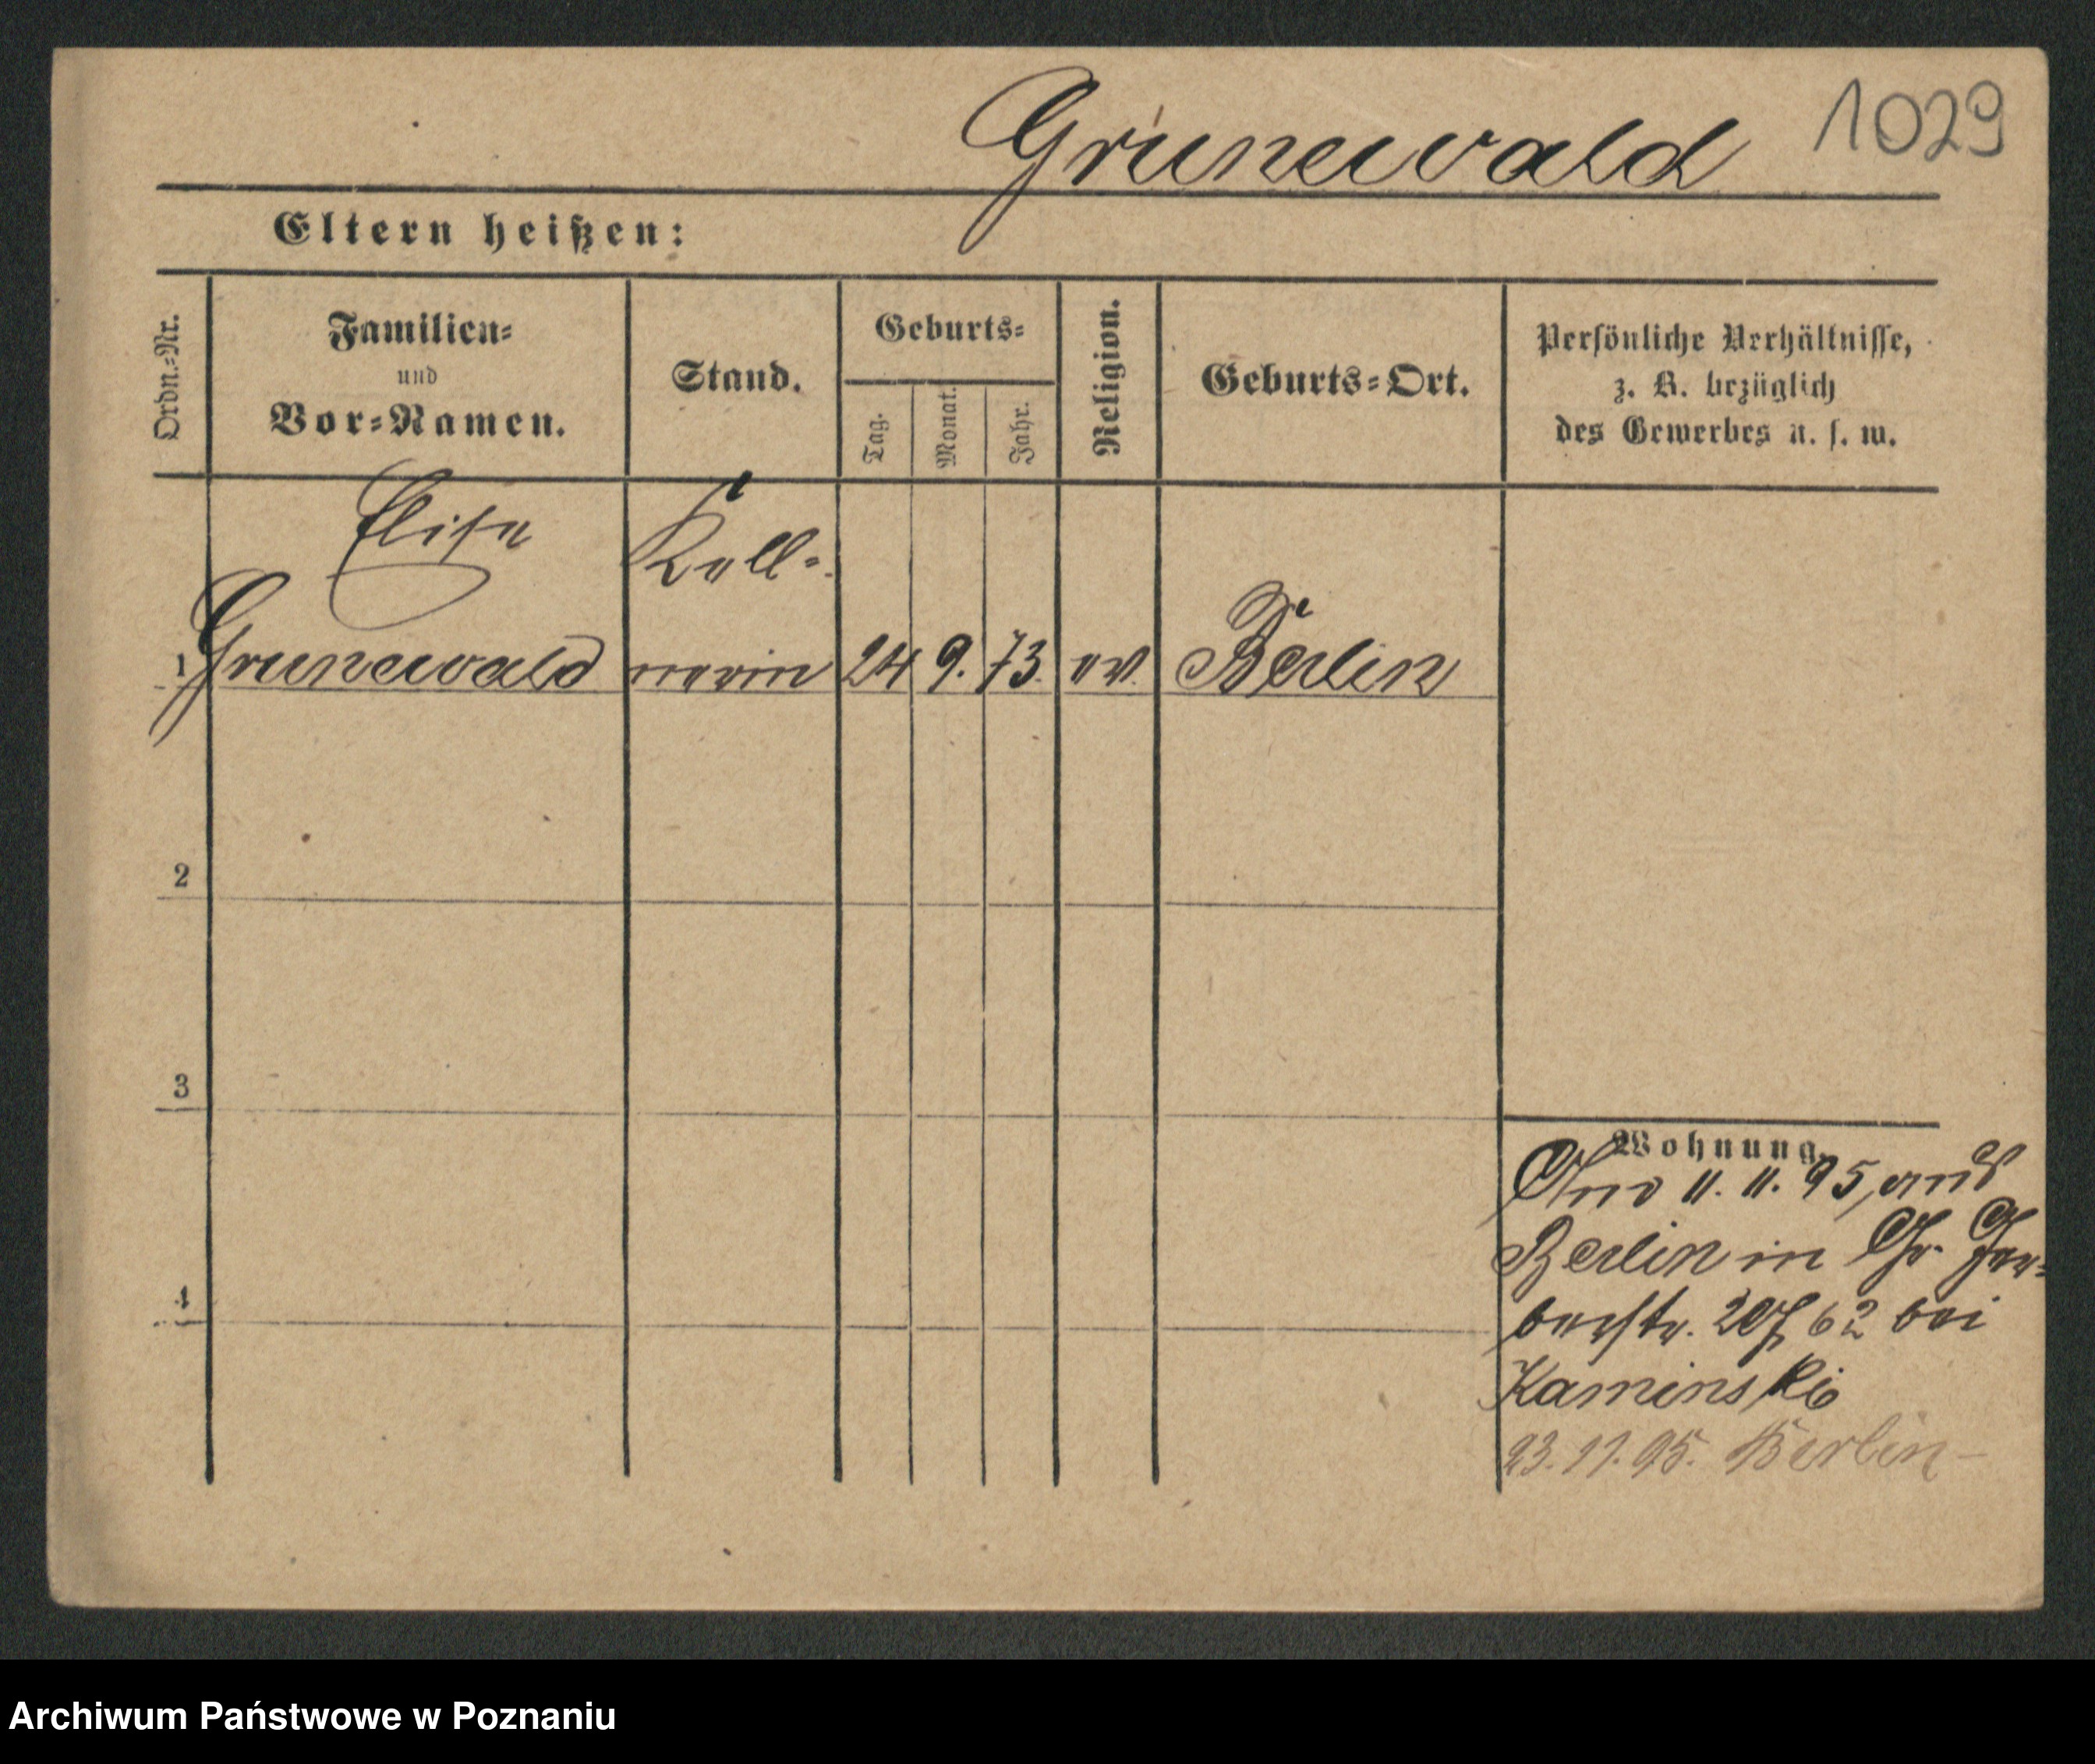 Grunewald 1029
Eltern heißen:
Ordn.-Nr.
Familien-
und
Vor-Namen.
Stand.
Geburts-
Tag.
Monat.
Jahr.
Religion.
Geburts-Ort.
Persönliche Verhältnisse,
z. B. bezüglich
des Gewerbes u. s. w.
Elise Kell-
1 Grunewald nerin 24 9. 73. ev. Berlin
2
3
4
Wohnung.
11. 11. 95, aus
Berlin in Gr. Ger-
berstr. bei
Kaminski
23. 11. 95. Berlin-
Archiwum Państwowe w Poznaniu